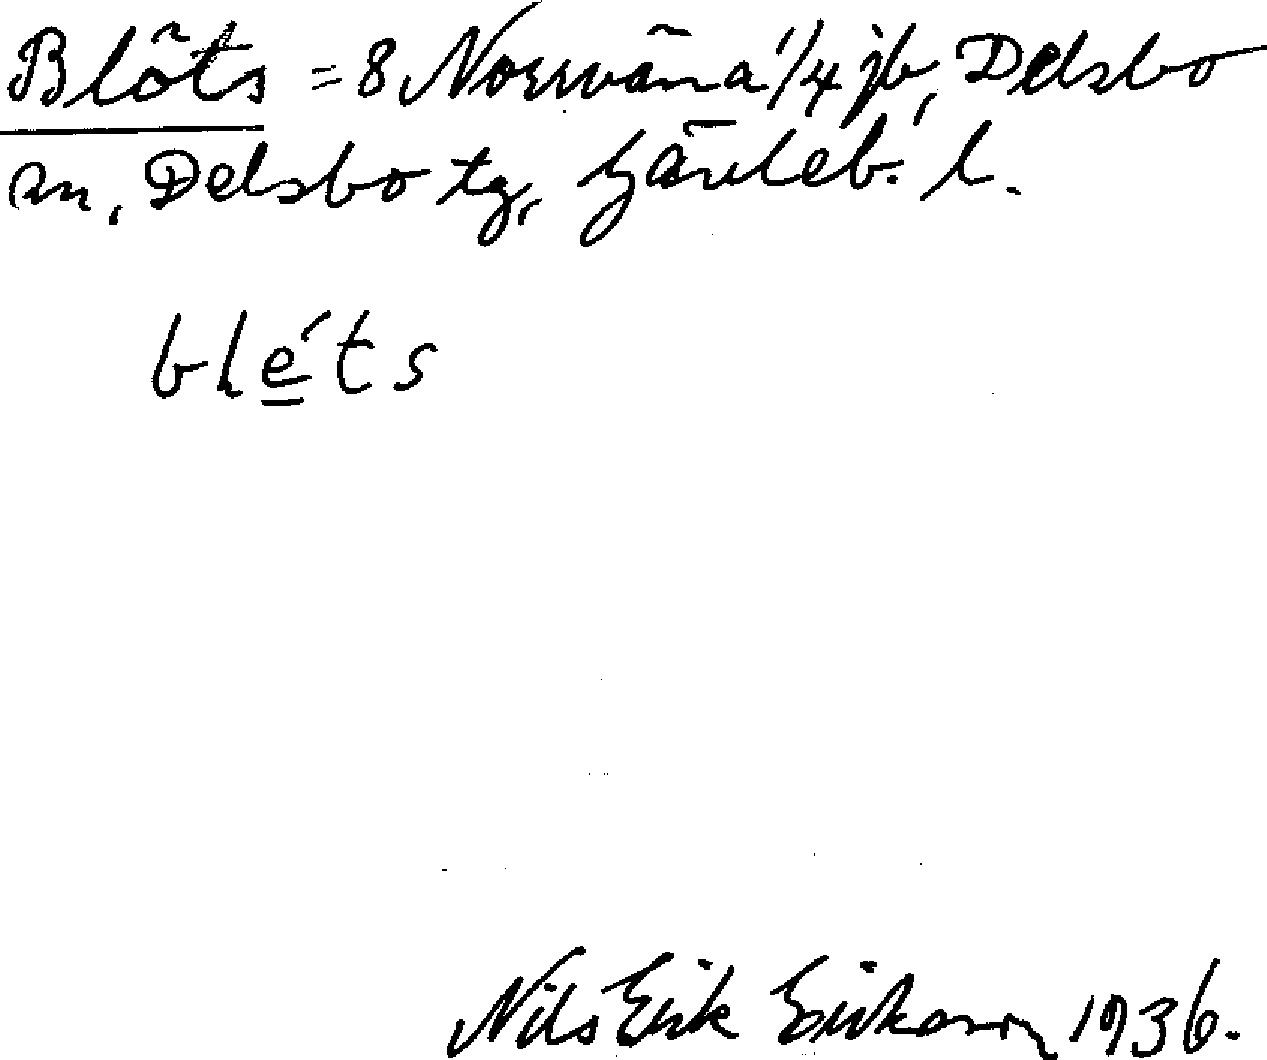 Blöts = 8 Norrväna 1/4 jb, Delsbo
sn, Delsbo tg, Gävleb. l.
bléts
Nils Erik Erikson 1936.